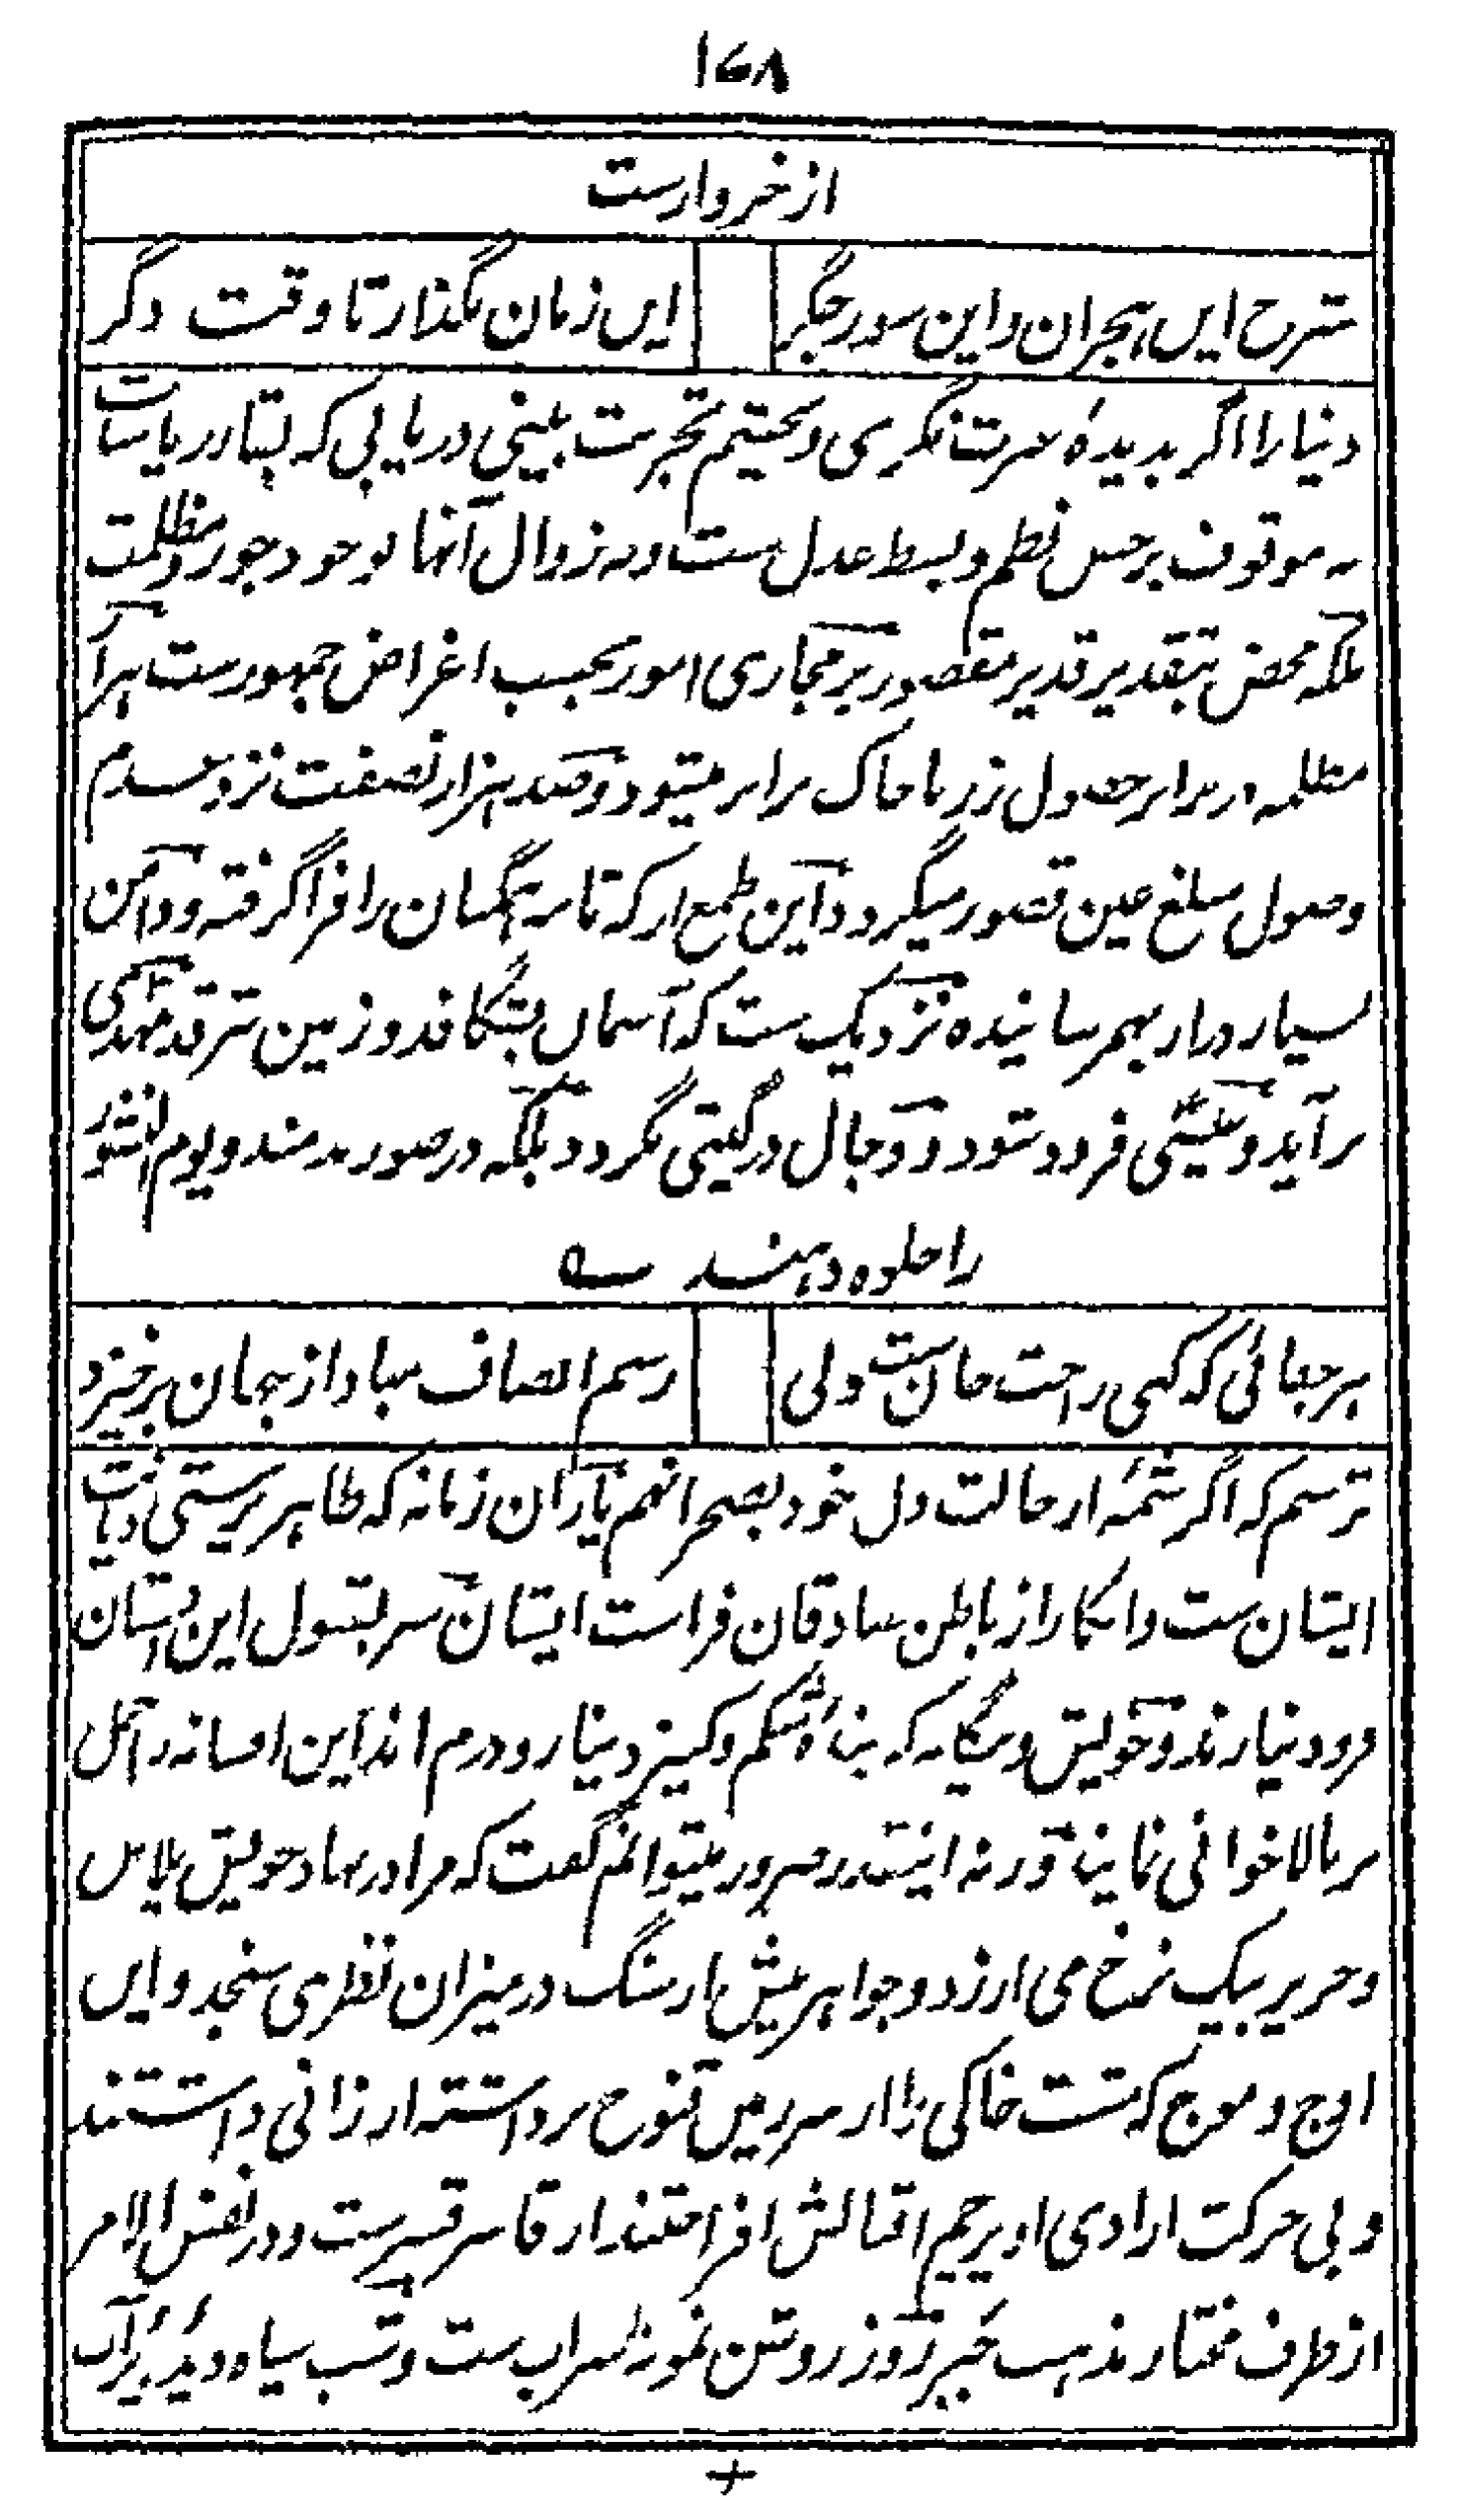 ۱۶۸
از خروارست
شرح این ہجران و این سوز جگر این زمان بگذار تا وقت دگر
دنیا را اگر بدیدۂ عبرت نگری و بچشم تجربت بینی دریابی کہ بقا در ریاسات
نہ موقوف بر حسن نظم و بسط عدل ست و نہ زوال آنہا بوجود جور و مظلمت
بلکہ محض بتقدیر قدیر مقصور بر مجاری امور بحسب اغراض جمہورست ہزار
مظلمہ در برابر حصول زر با خاک برابر میشود و صد ہزار نصفت نزد عدم
وصول مبلغ عین قصور میگردد این طمع از کہ تا مہ ہمگنان را فرا گرفتہ و دامن
بسیار دراز بہم رسانیدہ نزدیک ست کہ آسمان بشگافد و زمین شرقد مہدی
برآید و عیسی فرود شود و دجال در گیتی گردد بلکہ در صور بدمند و یوم النشور
را جلوہ دہند ؎
ہر جفائی کہ کنی راحت جان ست ولی رسم انصاف مبادا ز جہان برخیزد
ترسم کہ اگر شمۂ از حالت دل خود بصحرا نہم یاران زمانہ کہ ظاہر پرستی دیانت
ایشان ست و انکار از باطن صادقان فراست ایشان سر بقبول این داستان
فرود نیارند و خویش و بیگانہ کہ بندۂ شکم و کنیز دینار و درم اند این افسانہ را حمل
بر بالاخوانی نمایند ورنہ اینقدر ضرور میتوانم گفت کہ مرا در نہاد خویش پلاس
و حریر بیک نرخ می ارزد و جواہر بیش از سنگ در میزان نظر نمی سنجد و این
اوج و موج کہ مشت خاکی را از سرزمین قنوج برداشتہ ارزانی داشتند
و بی حرکت ارادی او پرچم اقبالش افراختند از قاسر قسرست و در نفس الامر
از طرف مختار مذہب جبر روز روشن نمونۂ سراب ست و شب سیاہ